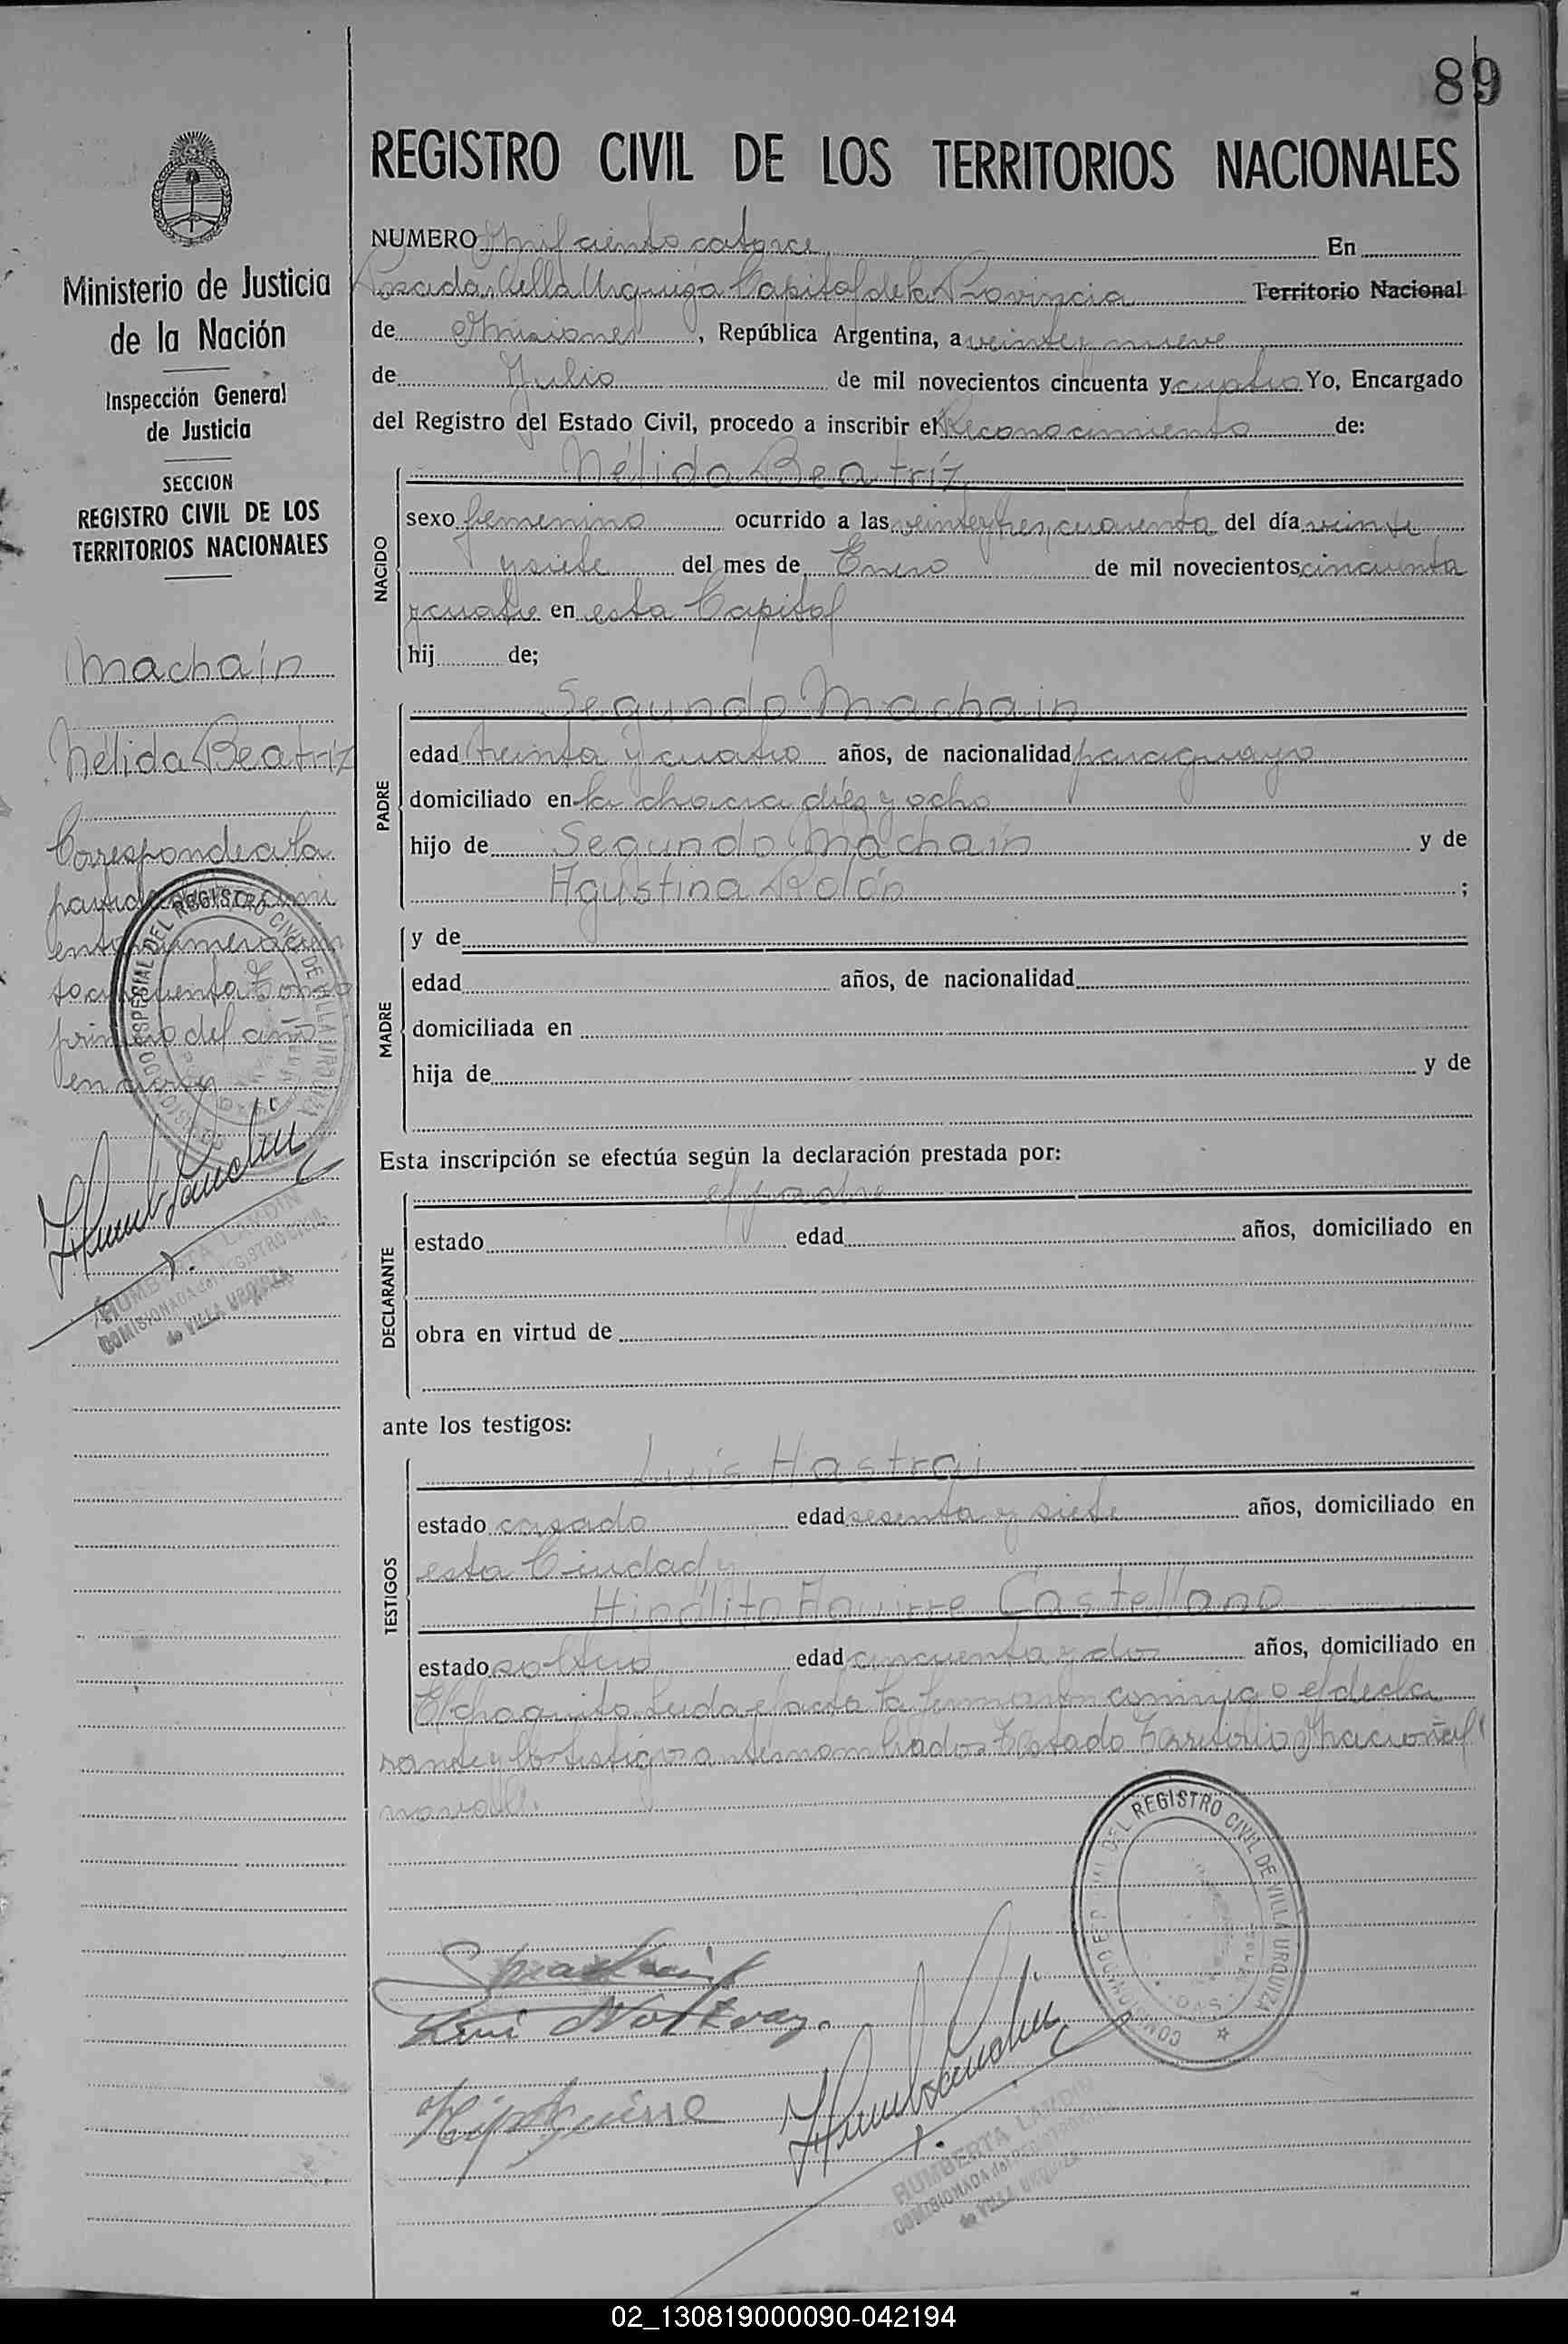 89
REGISTRO CIVIL DE LOS TERRITORIOS NACIONALES
NUMERO Mil ciento catorce En
Posadas Villa Urquiza Capital de la Provincia Territorio Nacional
de Misiones, República Argentina, a veinte y nueve
de Julio de mil novecientos cincuenta y cuatro Yo, Encargado
del Registro del Estado Civil, procedo a inscribir el Reconocimiento de:
NACIDO
Nélida Beatríz
sexo femenino ocurrido a las veinte y tres, cuarenta del día veinte
y siete del mes de Enero de mil novecientos cincuenta
y cuatro en esta Capital
hij de;
PADRE
Segundo Machain
edad treinta y cuatro años, de nacionalidad paraguayo
domiciliado en la chacra diéz y ocho
hijo de Segundo Machaín y de
Agustina Rolón ;
MADRE
y de
edad años, de nacionalidad
domiciliada en
hija de y de
Esta inscripción se efectúa según la declaración prestada por:
DECLARANTE
el padre
estado edad años, domiciliado en
obra en virtud de
ante los testigos:
TESTIGOS
Luís Hastrai
estado casado edad sesenta y siete años, domiciliado en
esta Ciudad y
Hipólito Aguirre Castellano
estado soltero edad cincuenta y dos años, domiciliado en
El chaquito. Leída el acta la firmaron conmigo el decla
rante y los testigos antes nombrados. Testado Territorio Nacional
no vale.
COMISIONADO ESPECIAL DEL REGISTRO CIVIL DE VILLA URQUIZA
HUMBERTA LANDIN
COMISIONADA del REGISTRO CIVIL
de VILLA URQUIZA
Ministerio de Justicia
de la Nación
Inspección General
de Justicia
SECCION
REGISTRO CIVIL DE LOS
TERRITORIOS NACIONALES
Machaín
Nélida Beatríz
Corresponde a la
partida
ento numero cien
to cincuenta Tomo
primero del año
en curso
COMISIONADO ESPECIAL DEL REGISTRO CIVIL DE VILLA URQUIZA
HUMBERTA LANDIN
COMISIONADA del REGISTRO CIVIL
de VILLA URQUIZA
02_130819000090-042194